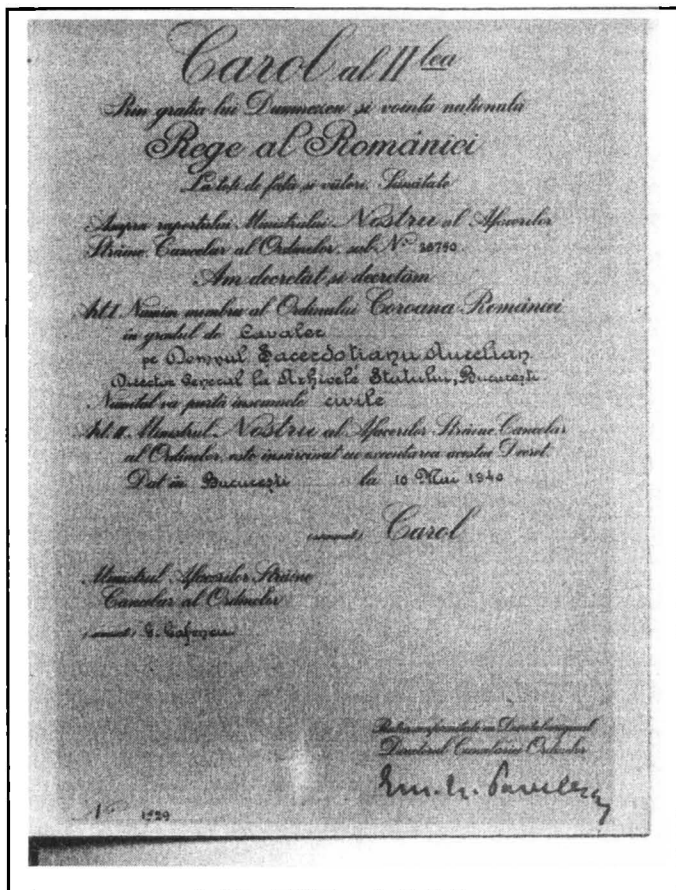 Carol al II lea
Prin grația lui Dumnezeu și voința națională
Rege al României
La toți de față și viitori, Sănătate
Asupra raportului Ministrului Nostru al Afacerilor
Străine Cancelar al Ordinelor, sub No 28790.
Am decretat și decretăm
Art. I. Numim membru al Ordinului Coroana României
în gradul de Cavaler
pe Domnul Sacerdoțianu Aurelian
Director General la Arhivele Statului, București
Numitul va purta însemnele civile
Art. II. Ministrul Nostru al Afacerilor Străine Cancelar
al Ordinelor, este însărcinat cu executarea acestui Decret.
Dat în București la 10 Mai 1940
Carol
Ministrul Afacerilor Străine
Cancelar al Ordinelor
G. Gafencu
Directorul Cancelariei Ordinelor
1929